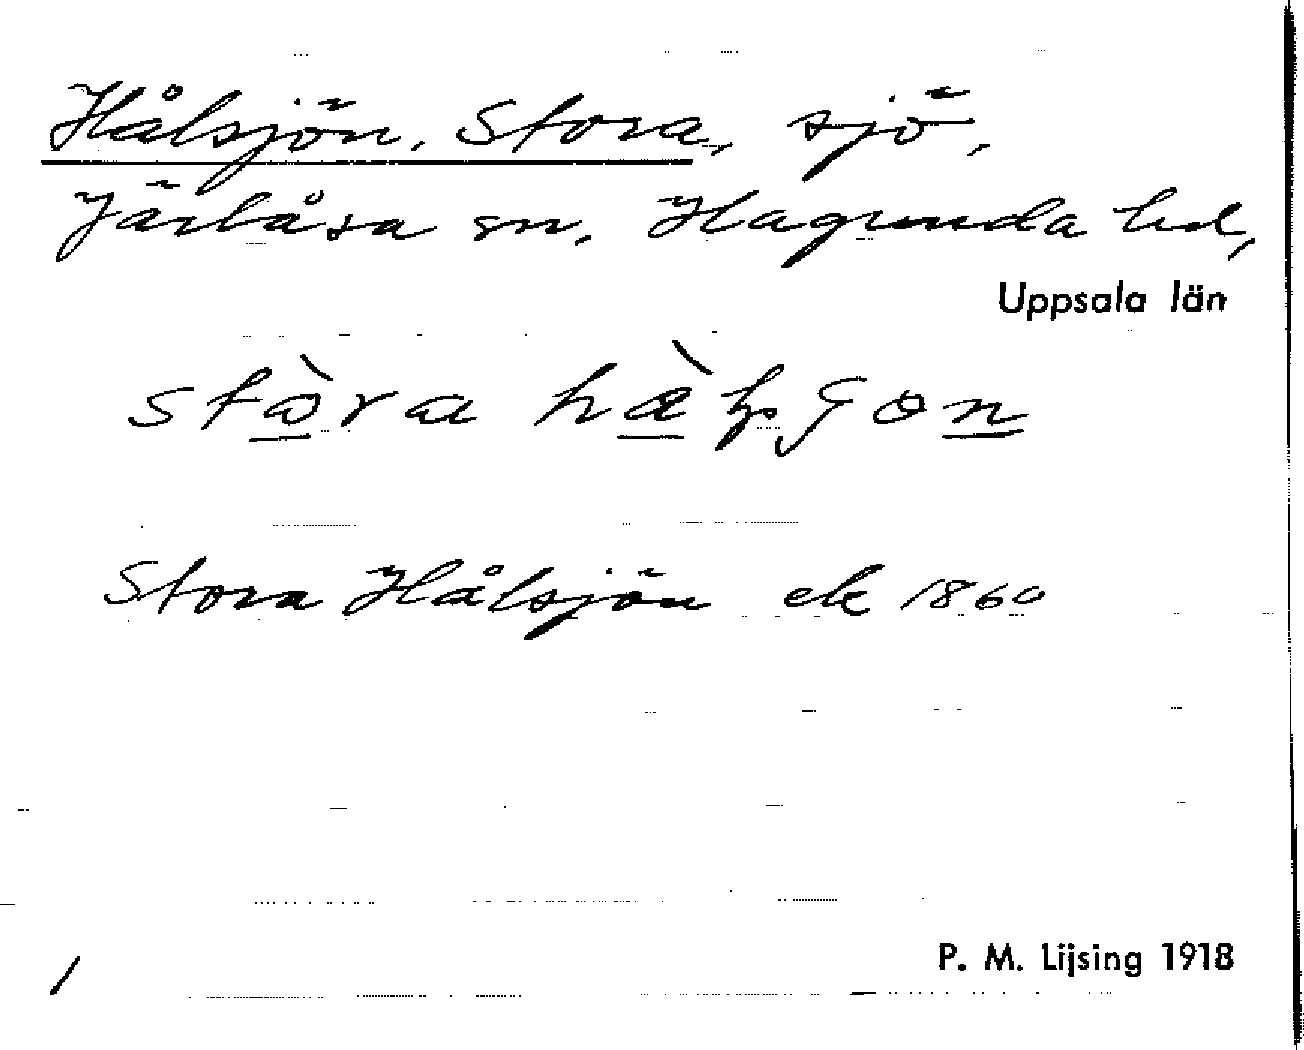 Hålsjön, Stora, sjö,
Järlåsa sn, Hagunda hd,
Uppsala län
Stora Hålsjön ek 1860
P. M. Lijsing 1918
/